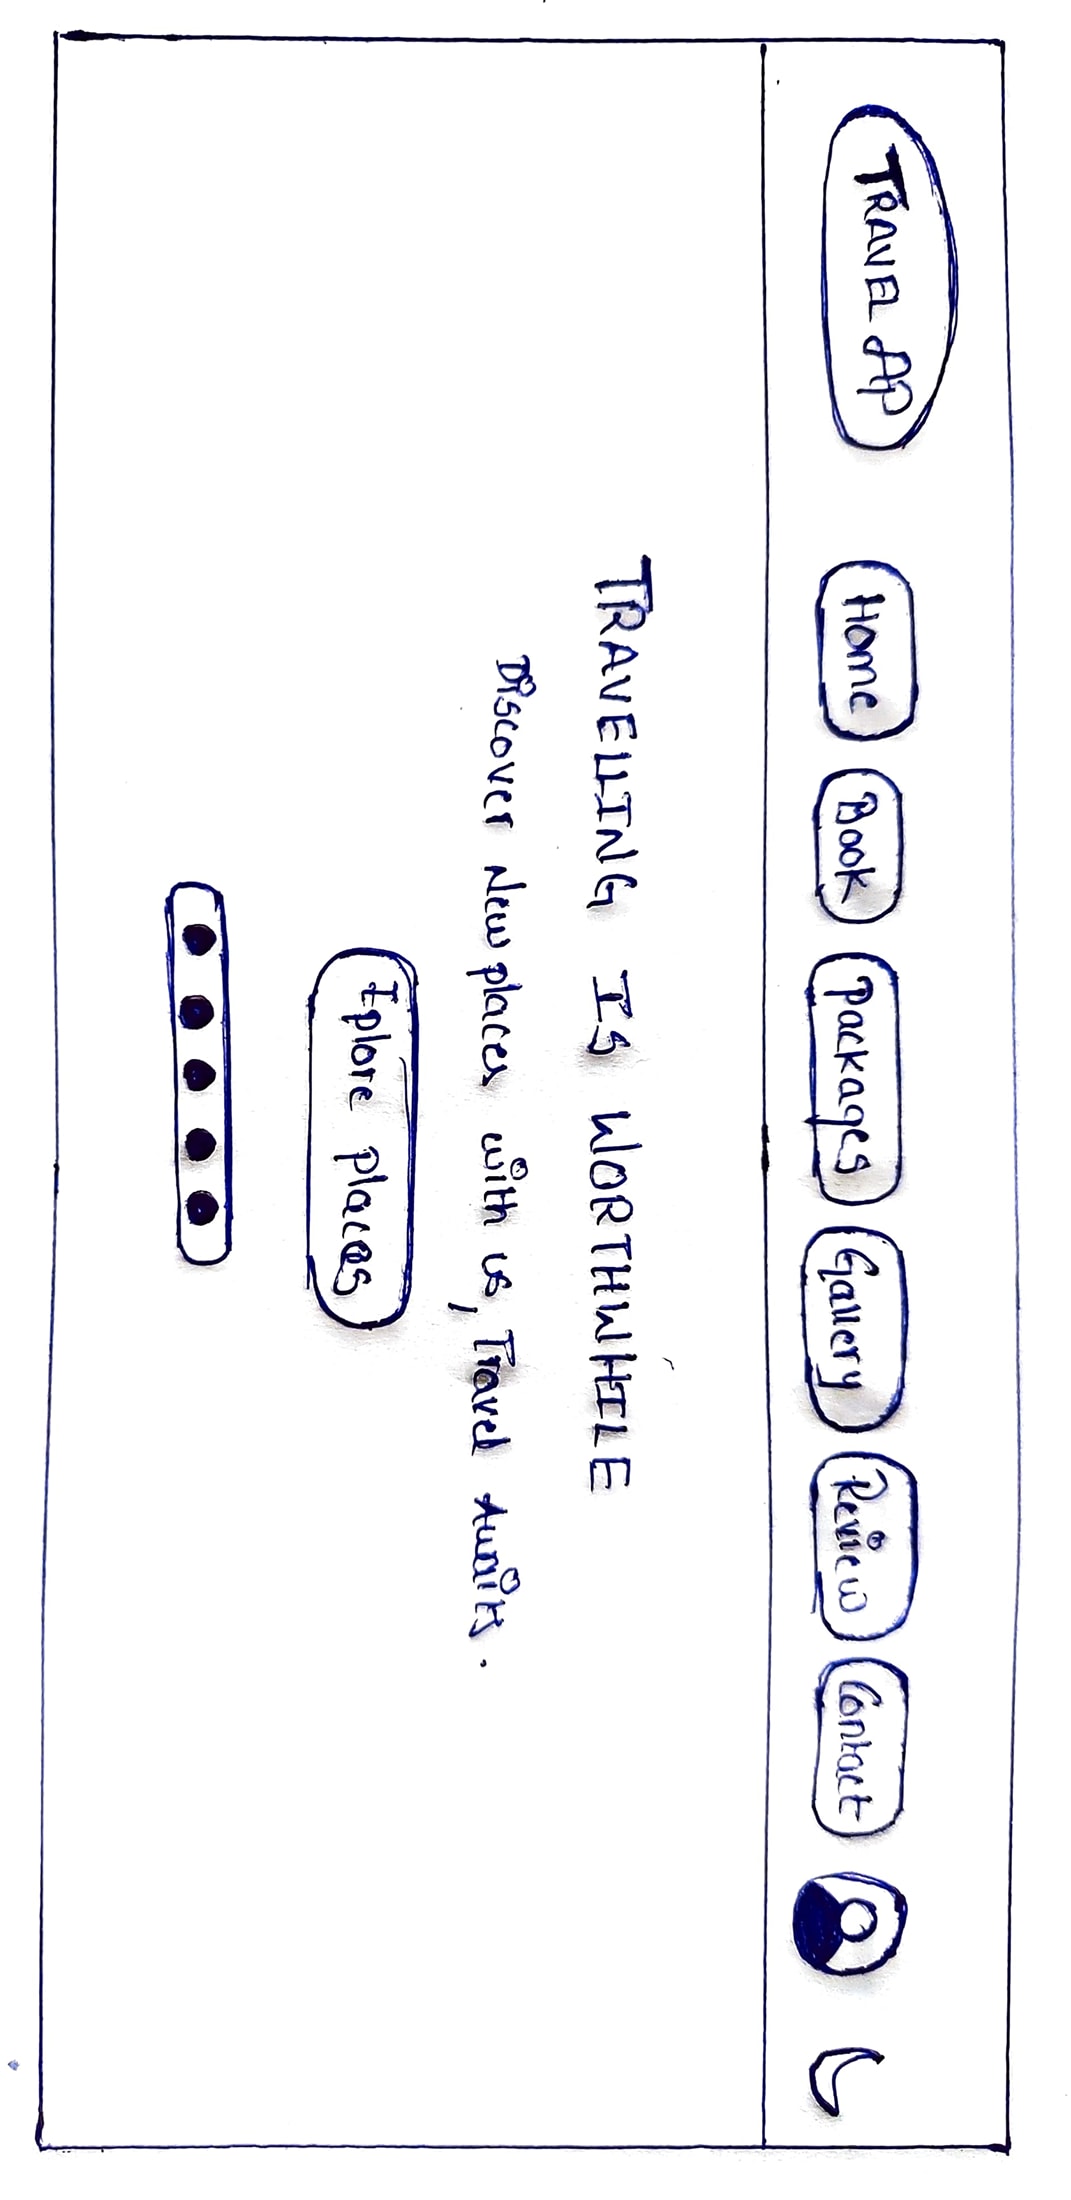 TRAVEL AP
Home
Book
Packages
Gallery
Review
Contact
TRAVELLING IS WORTHWHILE
Discover New places with us, Travel
Explore places